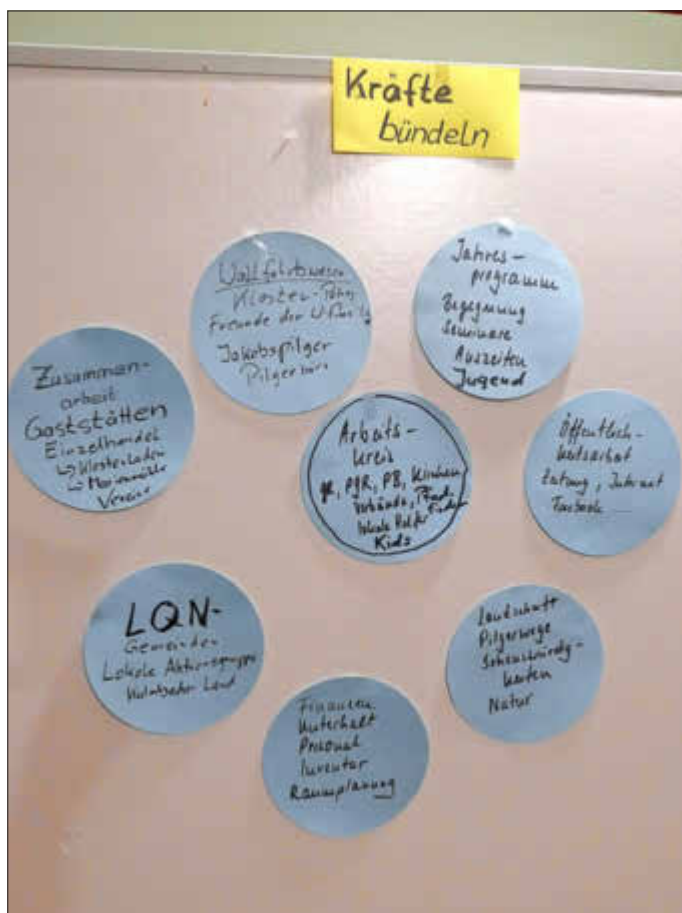 Kräfte
bündeln
Wallfahrtswesen
Kloster-
Freunde der
Jakobspilger
Pilgerbüro
Jahres-
programm
Begegnung
Seminare
Auszeiten
Jugend
Zusammen-
arbeit
Gaststätten
Einzelhandel
↳ Klosterladen
→ Marienmühle
Vereine
Arbeits-
kreis
PGR, Kirchen
Verbände,
lokale Helfer
Kids
Öffentlich-
keitsarbeit
Zeitung, Internet
LQN-
Gemeinden
Lokale Aktionsgruppe
Land
Landschaft
Pilgerwege
Sehenswürdig-
keiten
Natur
Finanzen
Unterhalt
Personal
Inventar
Raumplanung